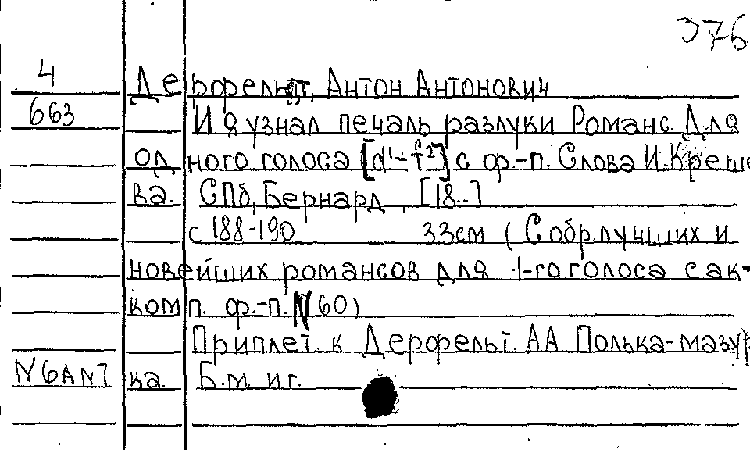 376
4
Дерфельдт, Антон Антонович
663
И я узнал печаль разлуки Романс. Для
одного голоса [d¹-f²] с ф.-п. Слова И. Креше
ва. СПб, Бернард, [18..]
с 188-190 33см (Собр. лучших и
новейших романсов для 1-го голоса с ак-
комп. ф.-п. N 60)
Приплет. к Дерфельт. А А Полька-мазур
ка. Б.м. и г.